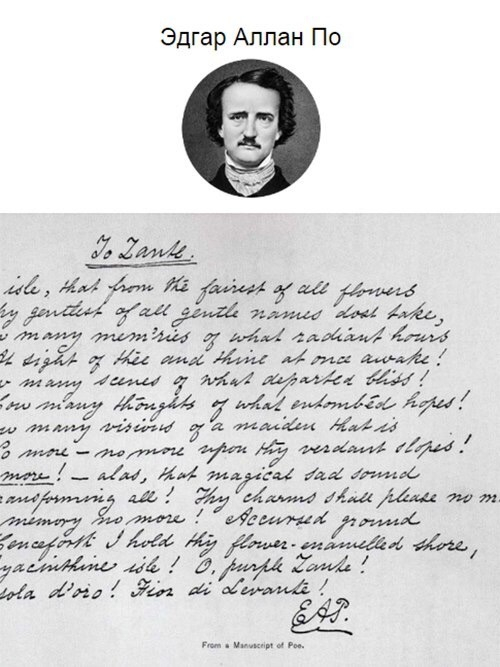 Эдгар Аллан По
To Zante.
isle, that from the fairest of all flowers
hy gentlest of all gentle names dost take,
w many mem'ries of what radiant hours
At sight of thee and thine at once awake!
w many scenes of what departed bliss!
How many thoughts of what entombéd hopes!
w many visions of a maiden that is
No more — no more upon thy verdant slopes!
more! — alas, that magical sad sound
ransforming all! Thy charms shall please no m
memory no more! Accursed ground
Henceforth I hold thy flower-enamelled shore,
yacinthine isle! O, purple Zante!
sola d'oro! Fior di Levante!
EAP.
From a Manuscript of Poe.